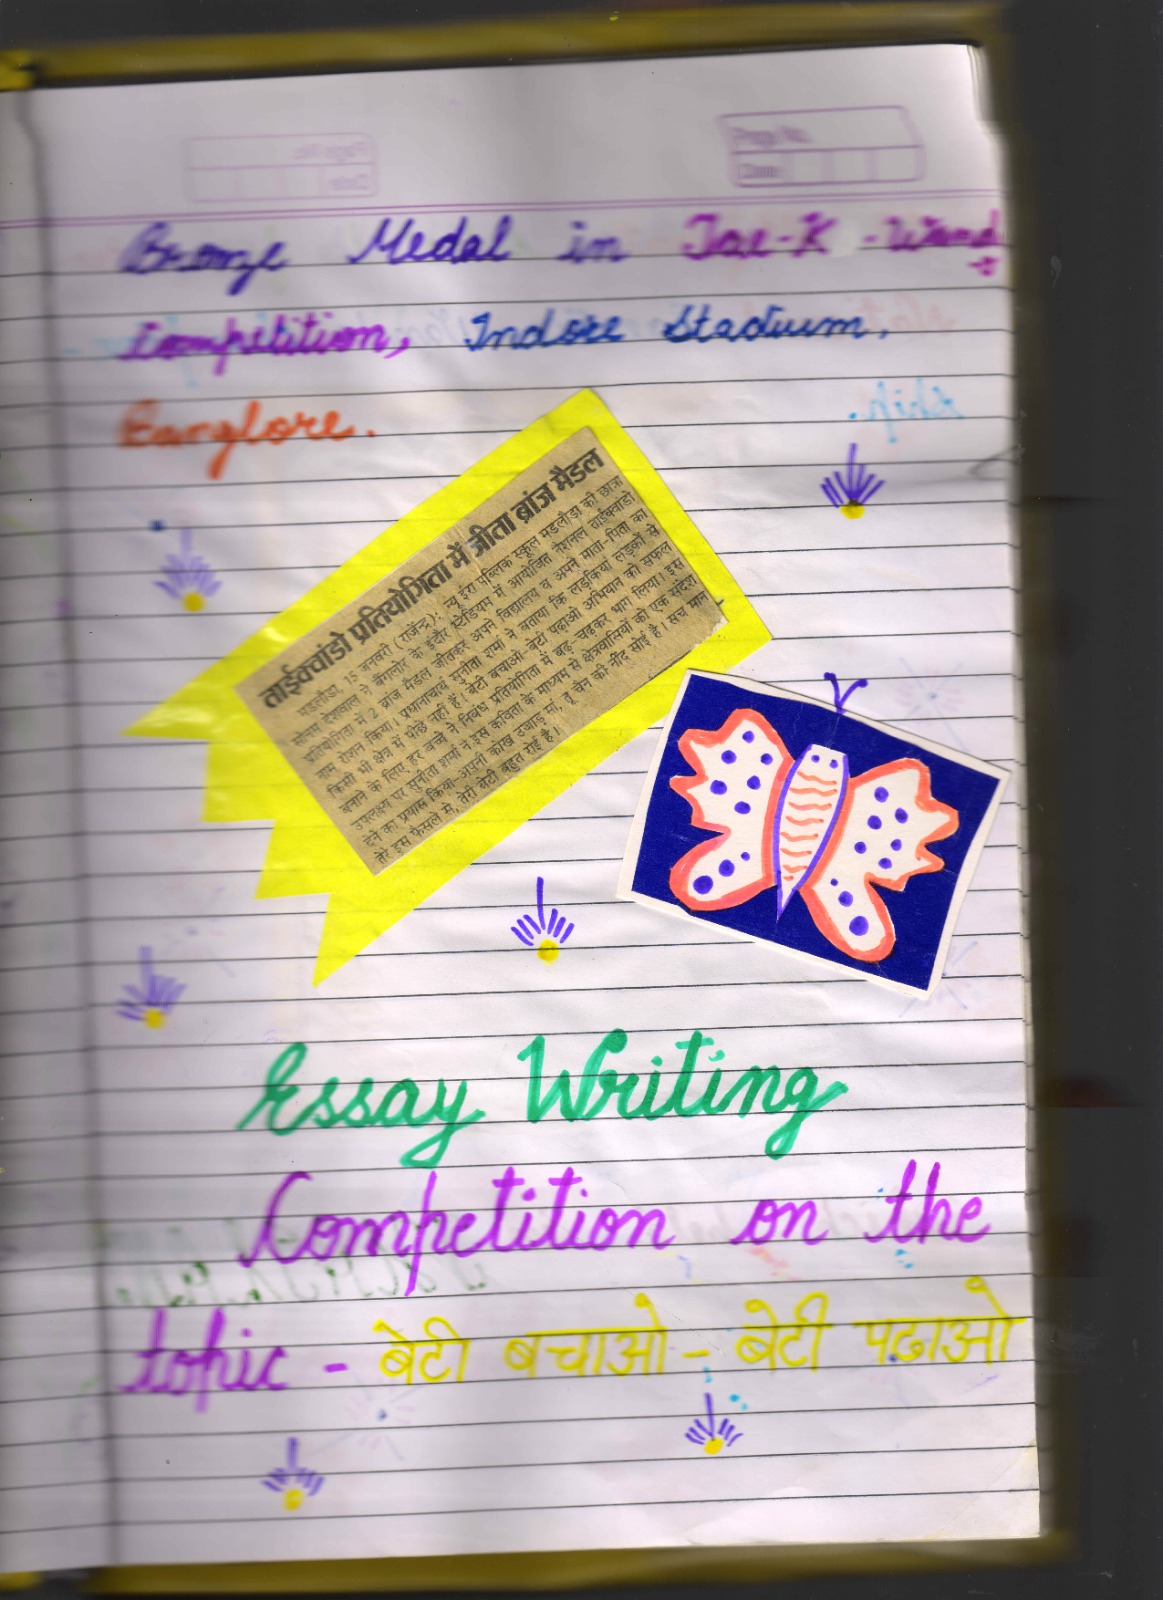 Page No.
Date
Bronze Medal in Tae-K -Wand
Competition, Indore Stadium,
Banglore.
ताईक्वांडो प्रतियोगिता में जीता ब्रांज मैडल
मडलौडा, 15 जनवरी (राजेन्द्र): न्यू ईरा पब्लिक स्कूल मडलौडा की छात्रा
सोनम देशवाल ने बैंगलोर के इंदौर स्टेडियम में आयोजित नेशनल ताईक्वांडो
प्रतियोगिता में 2 ब्रांज मैडल जीतकर अपने विद्यालय व अपने माता-पिता का
नाम रोशन किया। प्रधानाचार्य सुनीता शर्मा ने बताया कि लड़कियां लड़कों से
किसी भी क्षेत्र में पीछे नहीं हैं। बेटी बचाओ-बेटी पढ़ाओ अभियान को सफल
बनाने के लिए हर बच्चे ने निबंध प्रतियोगिता में बढ़-चढ़कर भाग लिया। इस
उपलक्ष्य पर सुनीता शर्मा ने इस कविता के माध्यम से क्षेत्रवासियों को एक संदेश
देने का प्रयास किया-अपनी कोख उजाड़ मां, तू चैन की नींद सोई है। सच मान
तेरे इस फैसले से, तेरी बेटी बहुत रोई है।
Essay Writing
Competition on the
topic - बेटी बचाओ - बेटी पढाओ